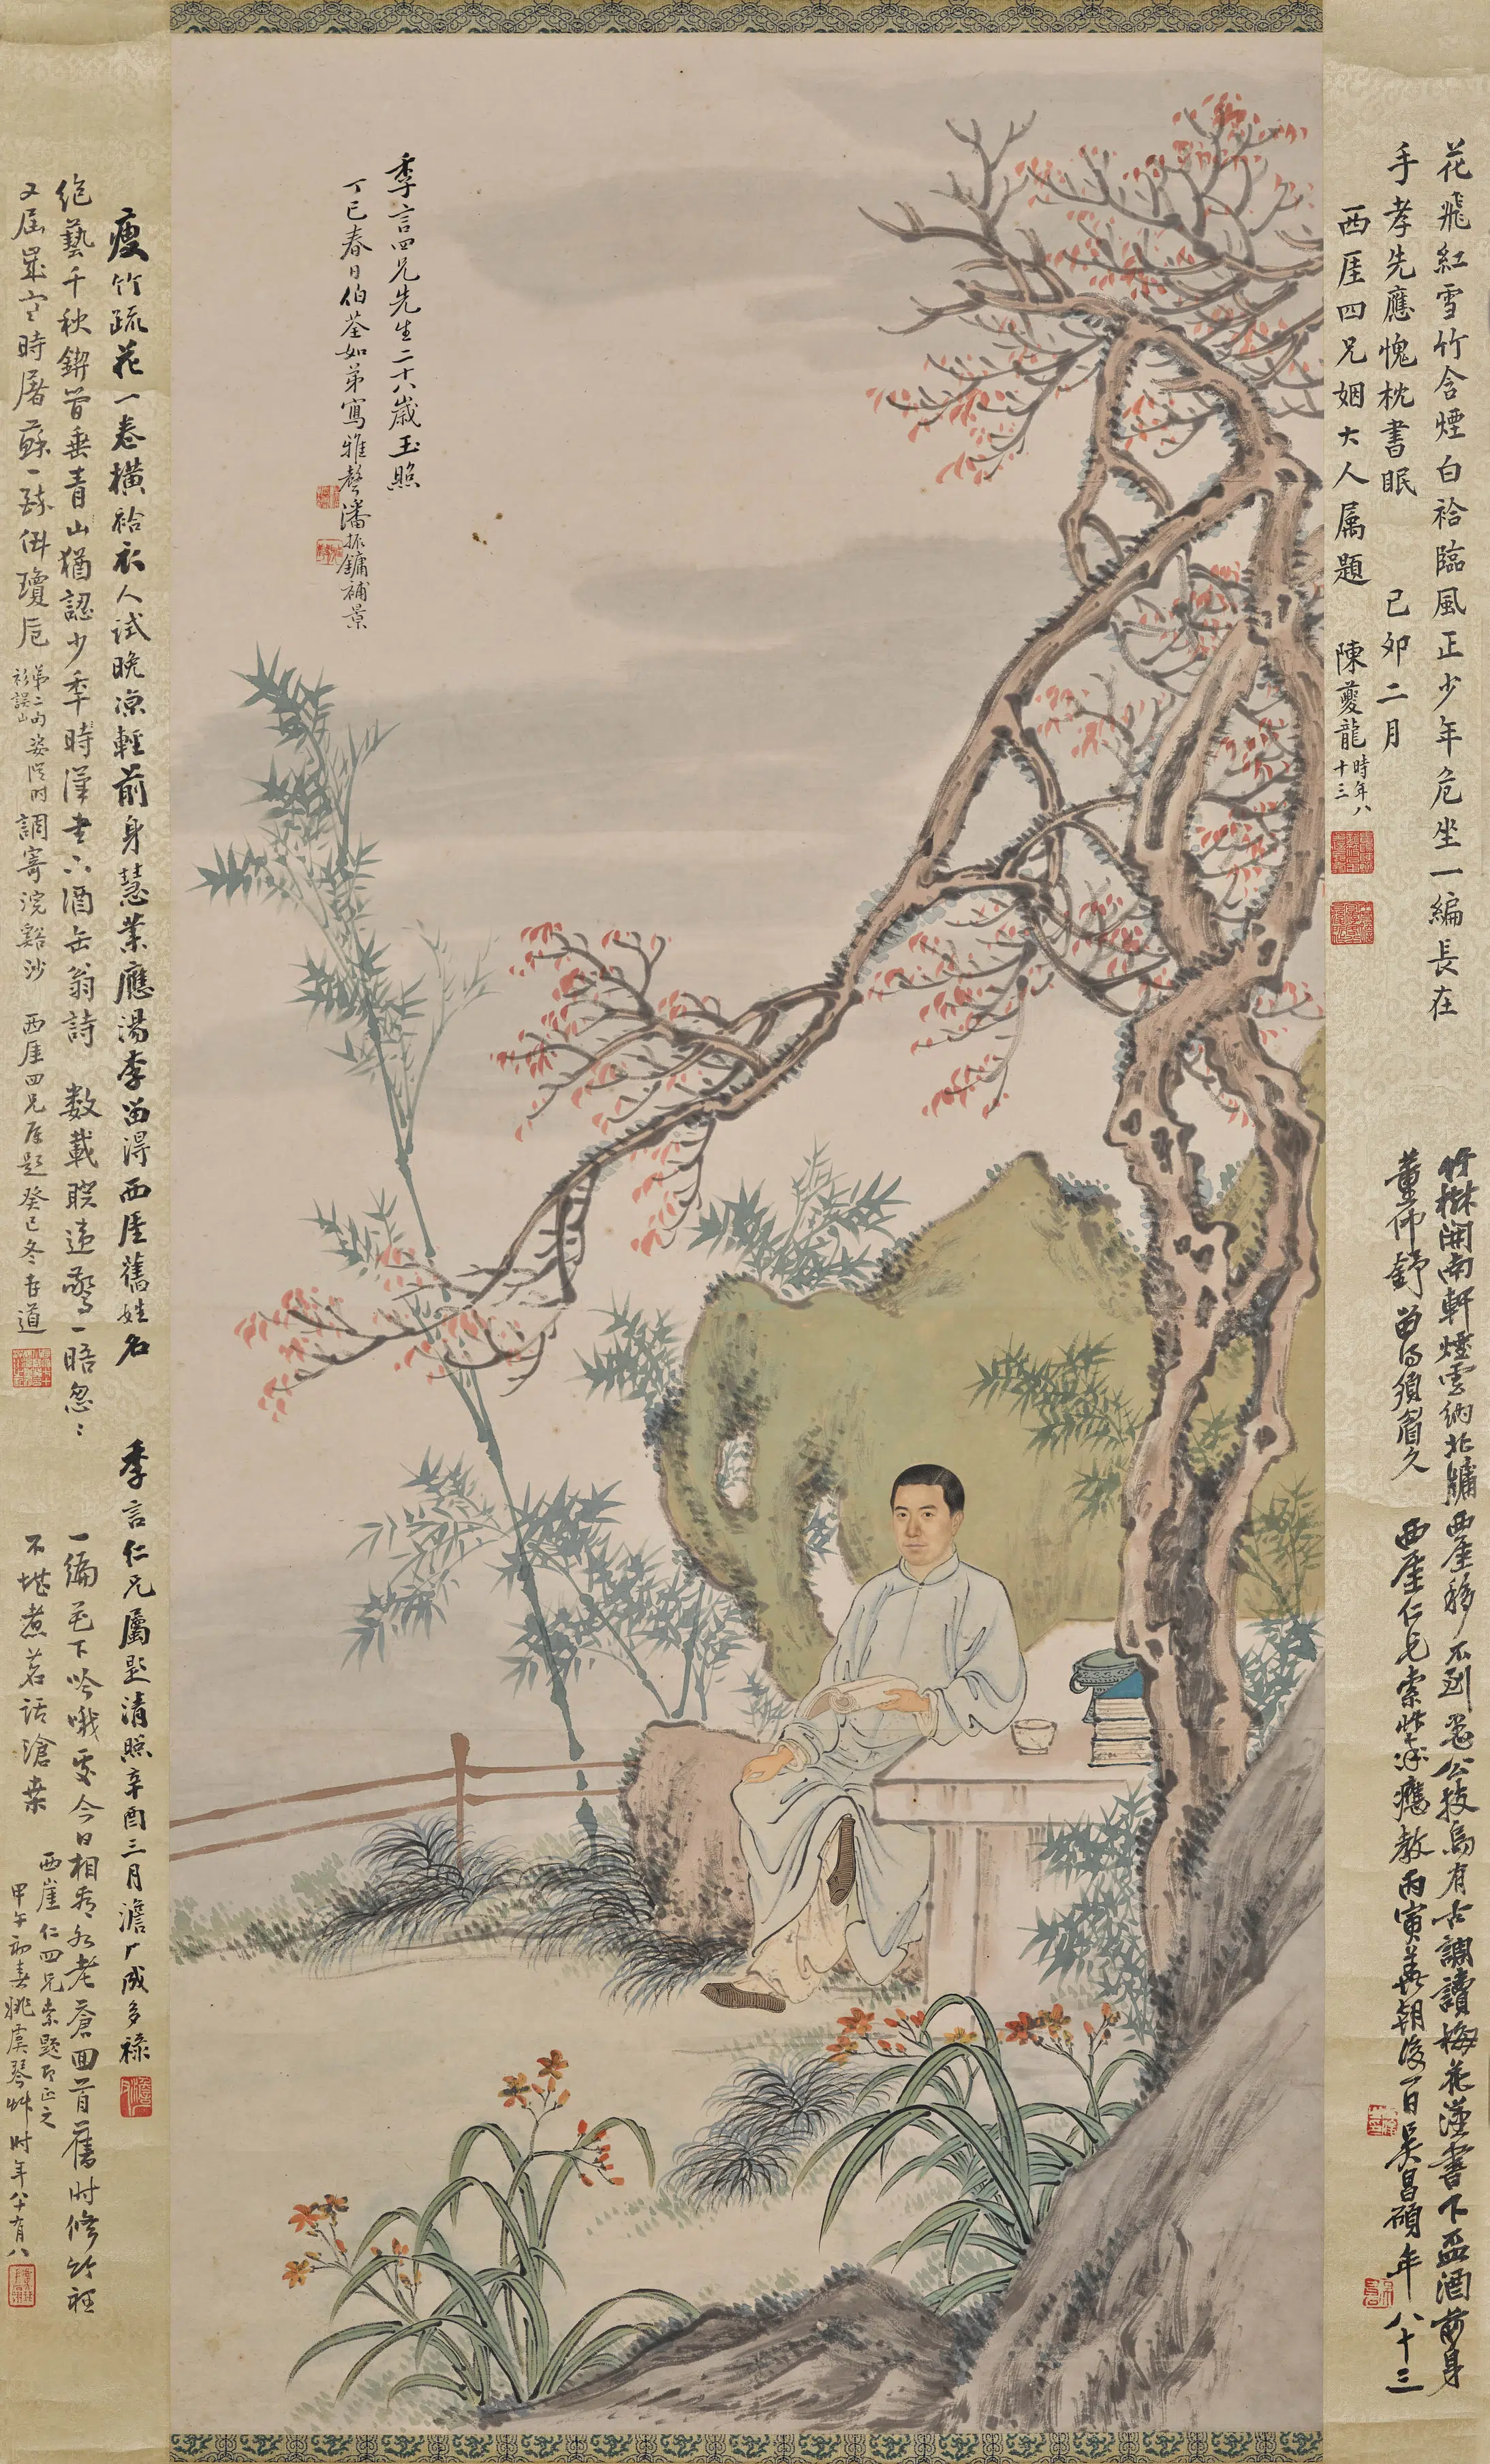 季言四兄先生二十八歲玉照
丁巳春日伯荃如弟寫雅聲潘振鏞補景
花飛紅雪竹含煙白袷臨風正少年危坐一編長在
手孝先應愧枕書眠　己卯二月
西厓四兄姻大人属題　陳夔龍時年八十三
竹樹開南軒煙雲納北牖西厓移不到愚公技烏有古調讀梅花漢書下盃酒前身
董仲舒留得須眉久　西厓仁兄索學咏應教丙寅花朝後一日吳昌碩年八十三
瘦竹疏花一卷橫袷衣人試晚涼輕前身慧業應湯李留得西厓舊姓名
季言仁兄屬題清照辛酉三月澹厂成多祿
絕藝千秋鍥管垂青山猶認少年時漢書下酒缶翁詩　數載睽違驚一晤忽忽
又屆歲寒時屠蘇一醆倒瓊卮
調寄浣谿沙　西厓四兄屬題癸巳冬
一編花下吟哦處今日相看各老蒼回首舊時修竹裡
不堪煮茗話滄桑　西崖仁四兄索題即正之
甲午初春姚虞琴時年八十有八